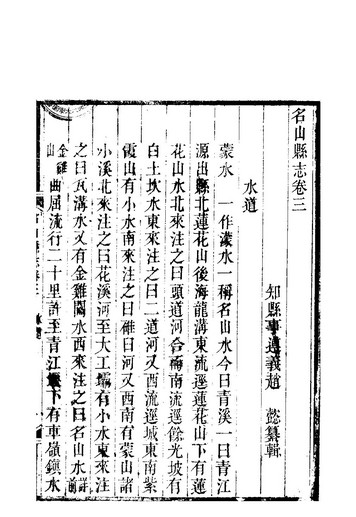 名山縣志卷三
知縣事遵義趙 懿纂輯
水道
蒙水 一作濛水一稱名山水今曰青溪一曰青江
源出縣北蓮花山後海龍溝東流逕蓮花山下有蓮
花山水北來注之曰頭道河合南南流逕餘光坡有
白土坎水東來注之曰二道河又西流逕城東南紫
霞山有小水南來注之曰碓臼河又西南有蒙山諸
小溪北來注之曰花溪河至大工壩有小水東來注
之曰瓦溝水又有金雞關水西來注之曰名山水詳前
金雞山 曲屈流行二十里許至青江壩下有車嶺鎮水